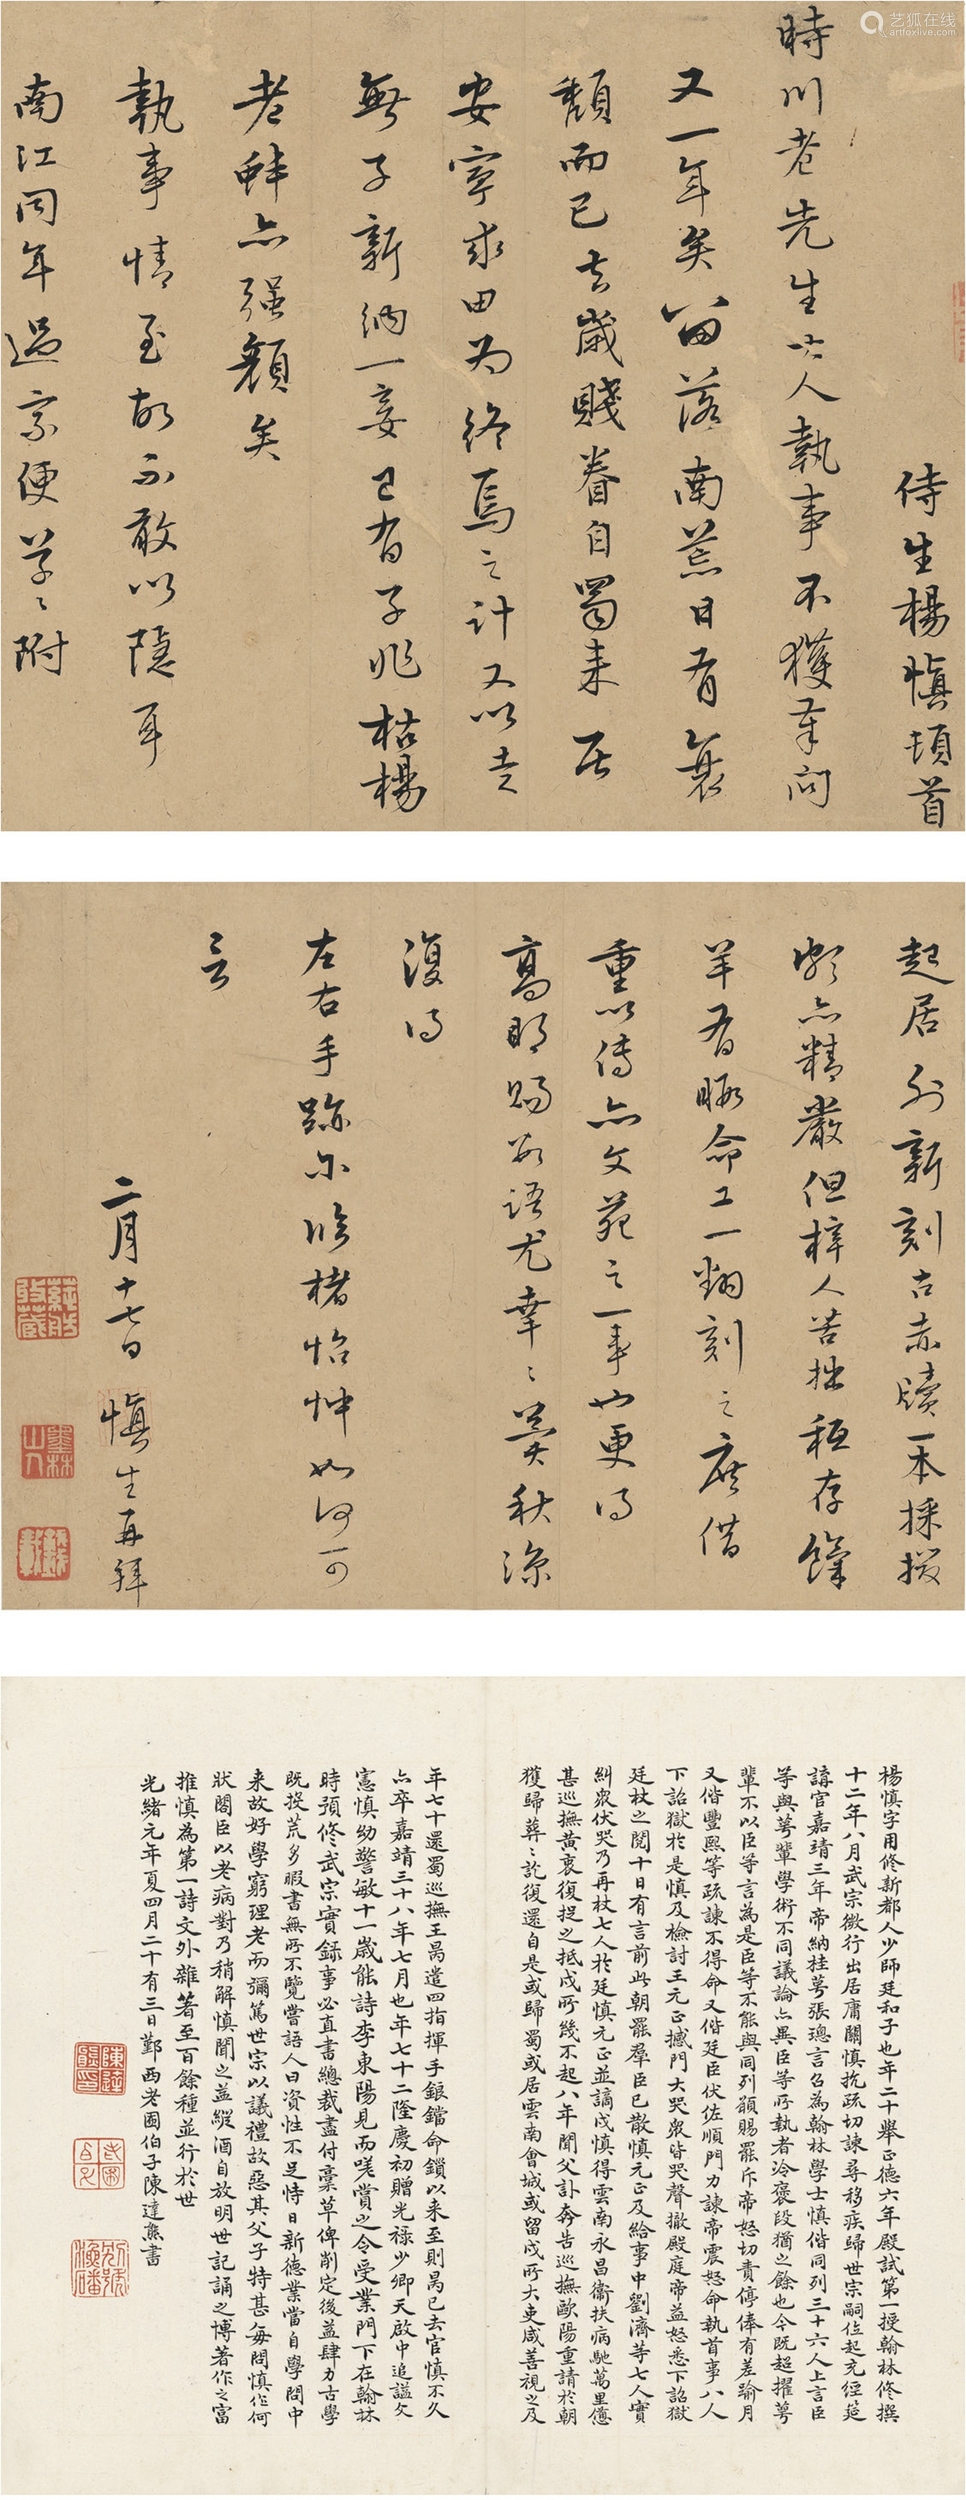 艺狐在线
artfoxlive.com
侍生楊慎頓首
時川老先生大人執事不獲奉問
又一年矣留落南荒日有衰
頹而已去歲賤眷自蜀來居
安寧求田為終焉之計又以老
無子新納一妾已有子兆枯楊
老蚌亦强顏矣
執事情至故不敢以隱耳
南江同年過家便草々附
起居外新刻古赤牘一本採掇
頗亦精嚴但梓人苦拙極存餘
羊有暇命工一翻刻之庶借
重以傳亦文苑之一事也更得
高明賜數語尤幸々簍秋涼
復得
左右手跡示臨楮怡忡如何可
言
二月十七日 慎生再拜
楊慎字用修新都人少師廷和子也年二十舉正德六年殿試第一授翰林修撰
十二年八月武宗微行出居庸關慎抗疏切諫尋移疾歸世宗嗣位起充經筵
講官嘉靖三年帝納桂萼張璁言召為翰林學士慎偕同列三十六人上言臣
等與萼輩學術不同議論亦異臣等所執者冷褒段猶之餘也今既超擢萼
輩不以臣等言為是臣等不能與同列願賜罷斥帝怒切責停俸有差踰月
又偕豐熙等疏諫不得命又偕廷臣伏佐順門力諫帝震怒命執首事八人
下詔獄於是慎及檢討王元正撼門大哭眾皆哭聲撤殿庭帝益怒悉下詔獄
廷杖之閱十日有言前此朝罷群臣已散慎元正及給事中劉濟等七人實
糾眾伏哭乃再杖七人於廷慎元正並謫戍慎得雲南永昌衞扶病馳萬里憊
甚巡撫黃衷復捉之抵戍所幾不起八年聞父訃奔告巡撫歐陽重請於朝
獲歸葬々訖復還自是或歸蜀或居雲南會城或留戍所大吏咸善視之及
年七十還蜀巡撫王昺遣四指揮手銀鐺命鎖以来至則昺已去官慎不久
亦卒嘉靖三十八年七月也年七十二隆慶初贈光祿少卿天啟中追謚文
憲慎幼警敏十一歲能詩李東陽見而嗟賞之令受業門下在翰林
時預修武宗實錄事必直書總裁盡付藁草俾削定後益肆力古學
既投荒多暇書無所不覽嘗語人曰資性不足恃日新德業當自學問中
来故好學窮理老而彌篤世宗以議禮故惡其父子特甚每問慎作何
狀閣臣以老病對乃稍解慎聞之益縱酒自放明世記誦之博著作之富
推慎為第一詩文外雜著至百餘種並行於世
光緒元年夏四月二十有三日鄞西老圃伯子陳達熊書